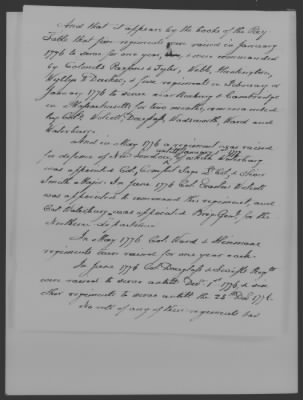 And that it appears by the books of the Pay
Table that five regiments were raised in January
1776 to serve for one year & were commanded
by Colonels Raymond & Tyler, Webb, Huntington,
Wyllys & Durkee, & four regiments in February or
January 1776 to serve near Roxbury & Cambridge
in Massachusetts for two months, commanded
by Cols. Wolcott, Douglass, Wadsworth, Ward and
Waterbury.
And in May 1776 a regiment was raised
until January 1st 1777
for defence of New London, of which Waterbury
was appointed Col. Comfort Sage Lt. Col. & Oliver
Smith Major. In June 1776 Col. Erastus Wolcott
was appointed to command this regiment, and
Col. Waterbury was appointed Brig. Genl. for the
Northern Department
In May 1776 Col. Ward &
regiments were raised for one year each.
In June 1776 Col. Douglass & Swifts Regts.
were raised to serve untill Decr. 1st 1776 & six
other regiments to serve untill the 25th Dec. 1776.
No roll of any of these regiments has